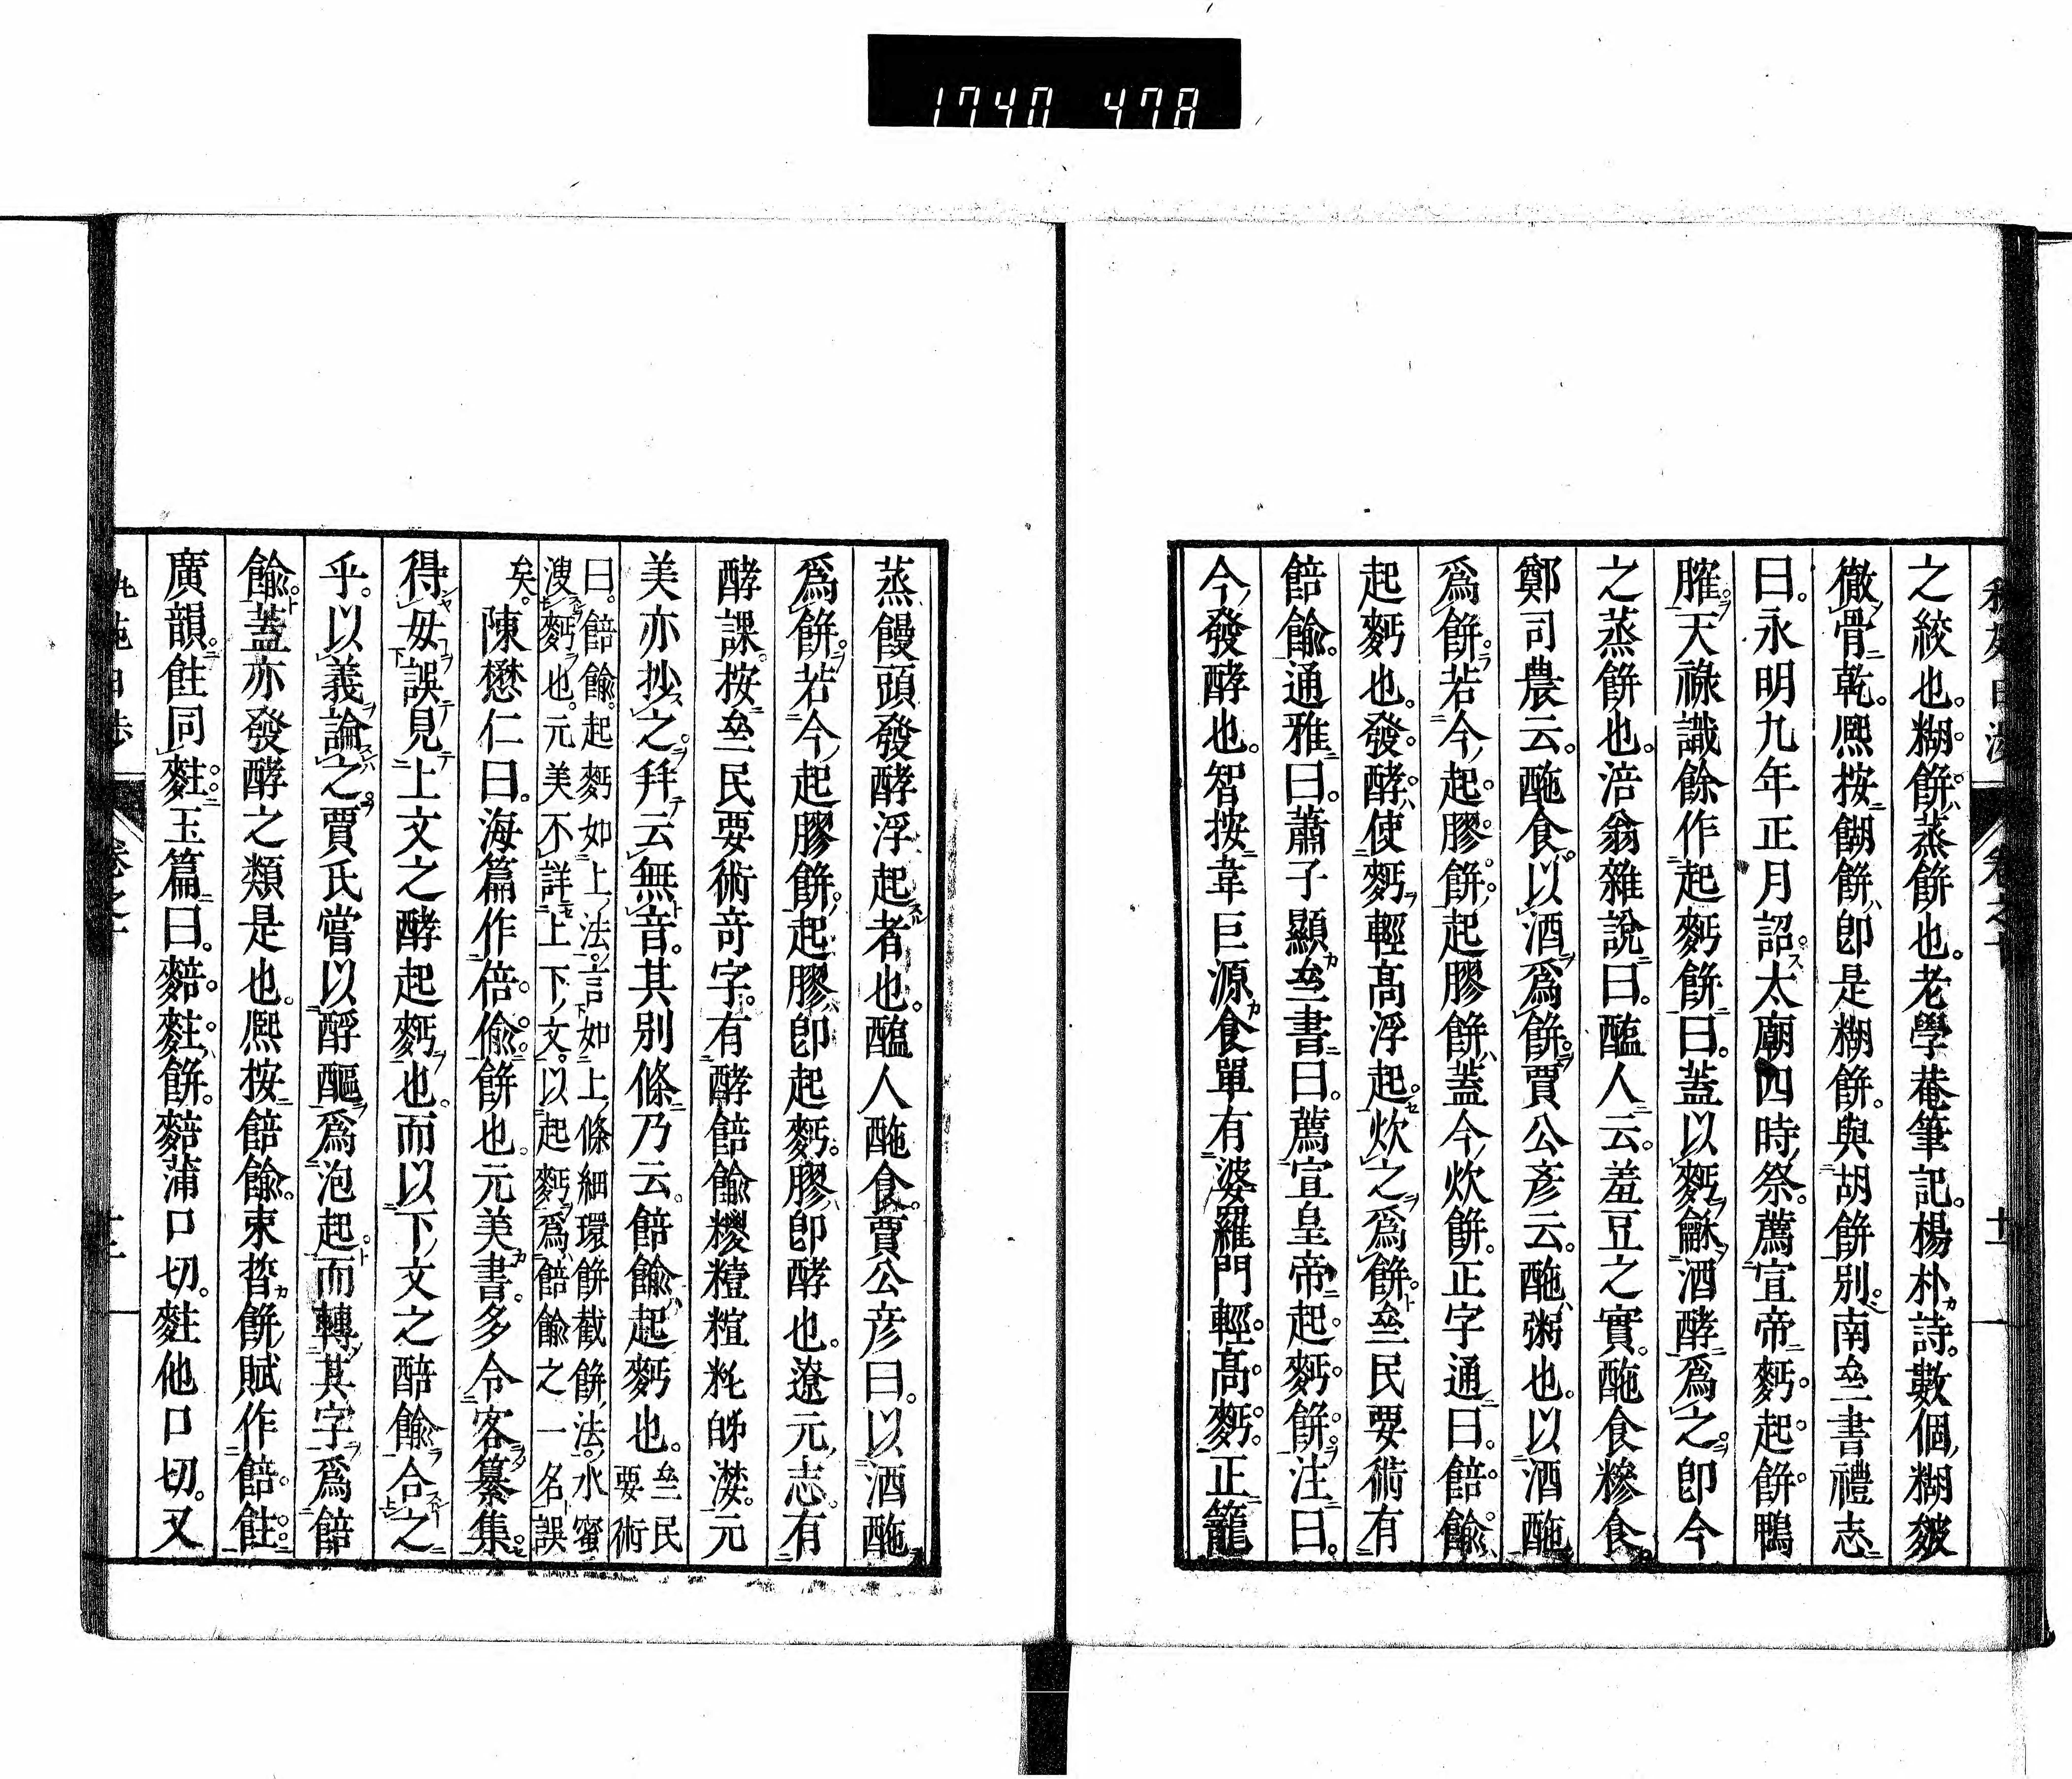 1740 478
之絞也。糊餅蒸餅也。老學菴筆記。楊朴詩。數個糊皴
徹骨乾。熈按餬餅卽是糊餅。與胡餅別。南𠫵書禮志
曰。永明九年正月詔太廟四時祭。薦宣帝麪起餅鴨
臛。天祿識餘作起麪餅曰。蓋以麪龢酒酵爲之。卽今
之蒸餅也。涪翁雜說曰。醢人云。羞豆之實。酏食糝食。
鄭司農云。酏食。以酒爲餅。賈公彥云。酏粥也。以酒酏
爲餅。若今起膠餅。起膠餅蓋今炊餅。正字通曰。餢飳
起麪也。發酵使麪輕髙浮起。炊之爲餅。𠫵民要術有
餢飳。通雅曰。蕭子顯𠫵書曰。薦宣皇帝起麪餅。注曰。
今發酵也。智按韋巨源食單有婆羅門輕髙麪。正籠
蒸饅頭發酵浮起者也。醢人酏食。賈公彥曰。以酒酏
爲餅。若今起膠餅。起膠卽起麪。膠卽酵也。遼元志。有
酵課。按𠫵民要術竒字。有酵餢飳
美亦抄之。幷云無音。其別條乃云。餢飳起麪也。𠫵民要術
曰。餢飳。起麪如上法。言如上條細環餅截餅法。水蜜
溲麪也。元美不詳上下文。以起麪爲餢飳之一名誤
矣。陳懋仁曰。海篇作偣偸餅也。元美書。多令客纂集。
得毋誤見上文之酵起麪也。而以下文之餢飳合之
乎。以義論之賈氏嘗以酵
爲泡起而轉其字爲餢
飳。蓋亦發酵之類是也。熈按餢飳。束晳餅賦作餢飳。
廣韻。飳同䴷。玉篇曰。䴺䴷餅。䴺蒲口切。䴷他口切。又